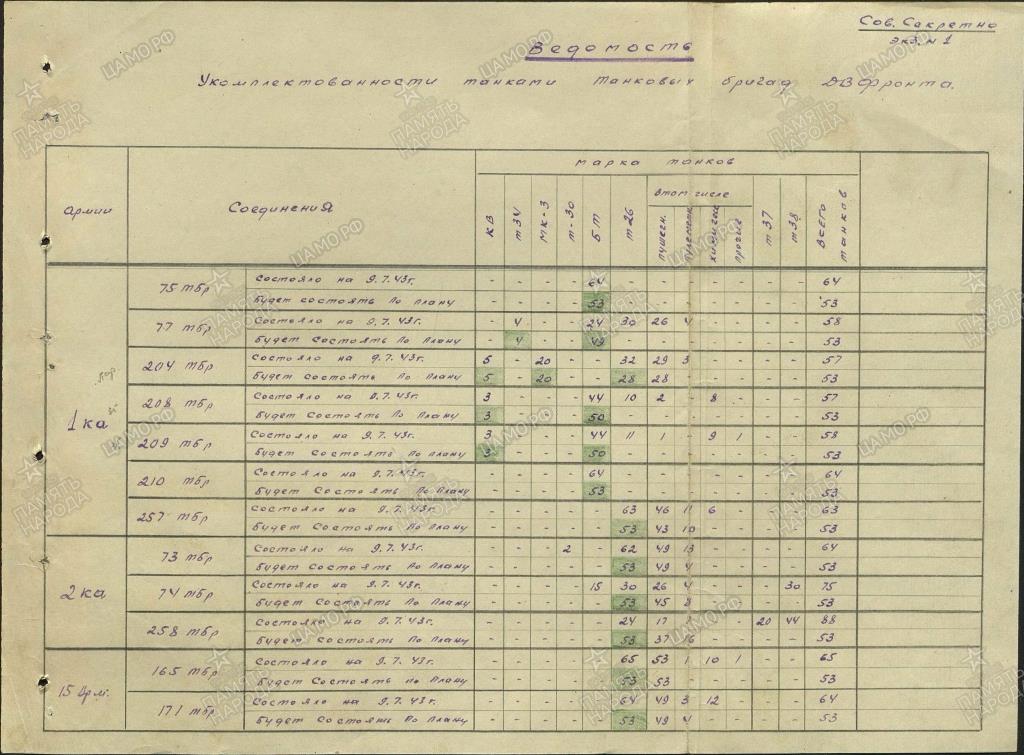 Сов. Секретно
экз. N 1
Ведомость
Укомплектованности танками танковых бригад ДВФронта.
Армии Соединения Марка танков Всего танков
КВ Т34 МК-3 Т-30 БТ Т26 в том числе Т37 Т38
пушечн. пулеметн. химичес. прочие
1 КА
75 тбр Состояло на 9.7.43г. - - - - 64 - - - - - - - 64
Будет состоять По плану - - - - 53 - - - - - - - 53
77 тбр Состояло на 9.7.43г. - 4 - - 24 30 26 4 - - - - 58
Будет Состоять По плану - 4 - - 49 - - - - - - - 53
204 тбр Состояло на 9.7.43г. 5 - 20 - - 32 29 3 - - - - 57
Будет Состоять По плану 5 - 20 - - 28 28 - - - - - 53
208 тбр Состояло на 9.7.43г. 3 - - - 44 10 2 - 8 - - - 57
Будет Состоять По плану 3 - - - 50 - - - - - - - 53
209 тбр Состояло на 9.7.43г. 3 - - - 44 11 1 - 9 1 - - 58
Будет состоять По плану 3 - - - 50 - - - - - - - 53
210 тбр Состояло на 9.7.43г. - - - - 64 - - - - - - - 64
Будет Состоять По плану - - - - 53 - - - - - - - 53
257 тбр Состояло на 9.7.43г. - - - - - 63 46 11 6 - - - 63
Будет Состоять По плану - - - - - 53 43 10 - - - - 53
2 КА
73 тбр Состояло на 9.7.43г. - - - 2 - 62 49 13 - - - - 64
Будет Состоять По плану - - - - - 53 49 4 - - - - 53
74 тбр Состояло на 9.7.43г. - - - - 15 30 26 4 - - - 30 75
Будет Состоять По плану - - - - - 53 45 8 - - - - 53
258 тбр Состояло на 9.7.43г. - - - - - 24 17 - - 20 44 88
Будет Состоять По плану - - - - - 53 37 16 - - - - 53
15 Арм.
165 тбр Состояло на 9.7.43г. - - - - - 65 53 1 10 1 - - 65
Будет Состоять По плану - - - - - 53 53 - - - - - 53
171 тбр Состояло на 9.7.43г. - - - - - 64 49 3 12 - - - 64
Будет Состоять По плану - - - - - 53 49 4 - - - - 53
ПАМЯТЬ НАРОДА
ЦАМО.РФ